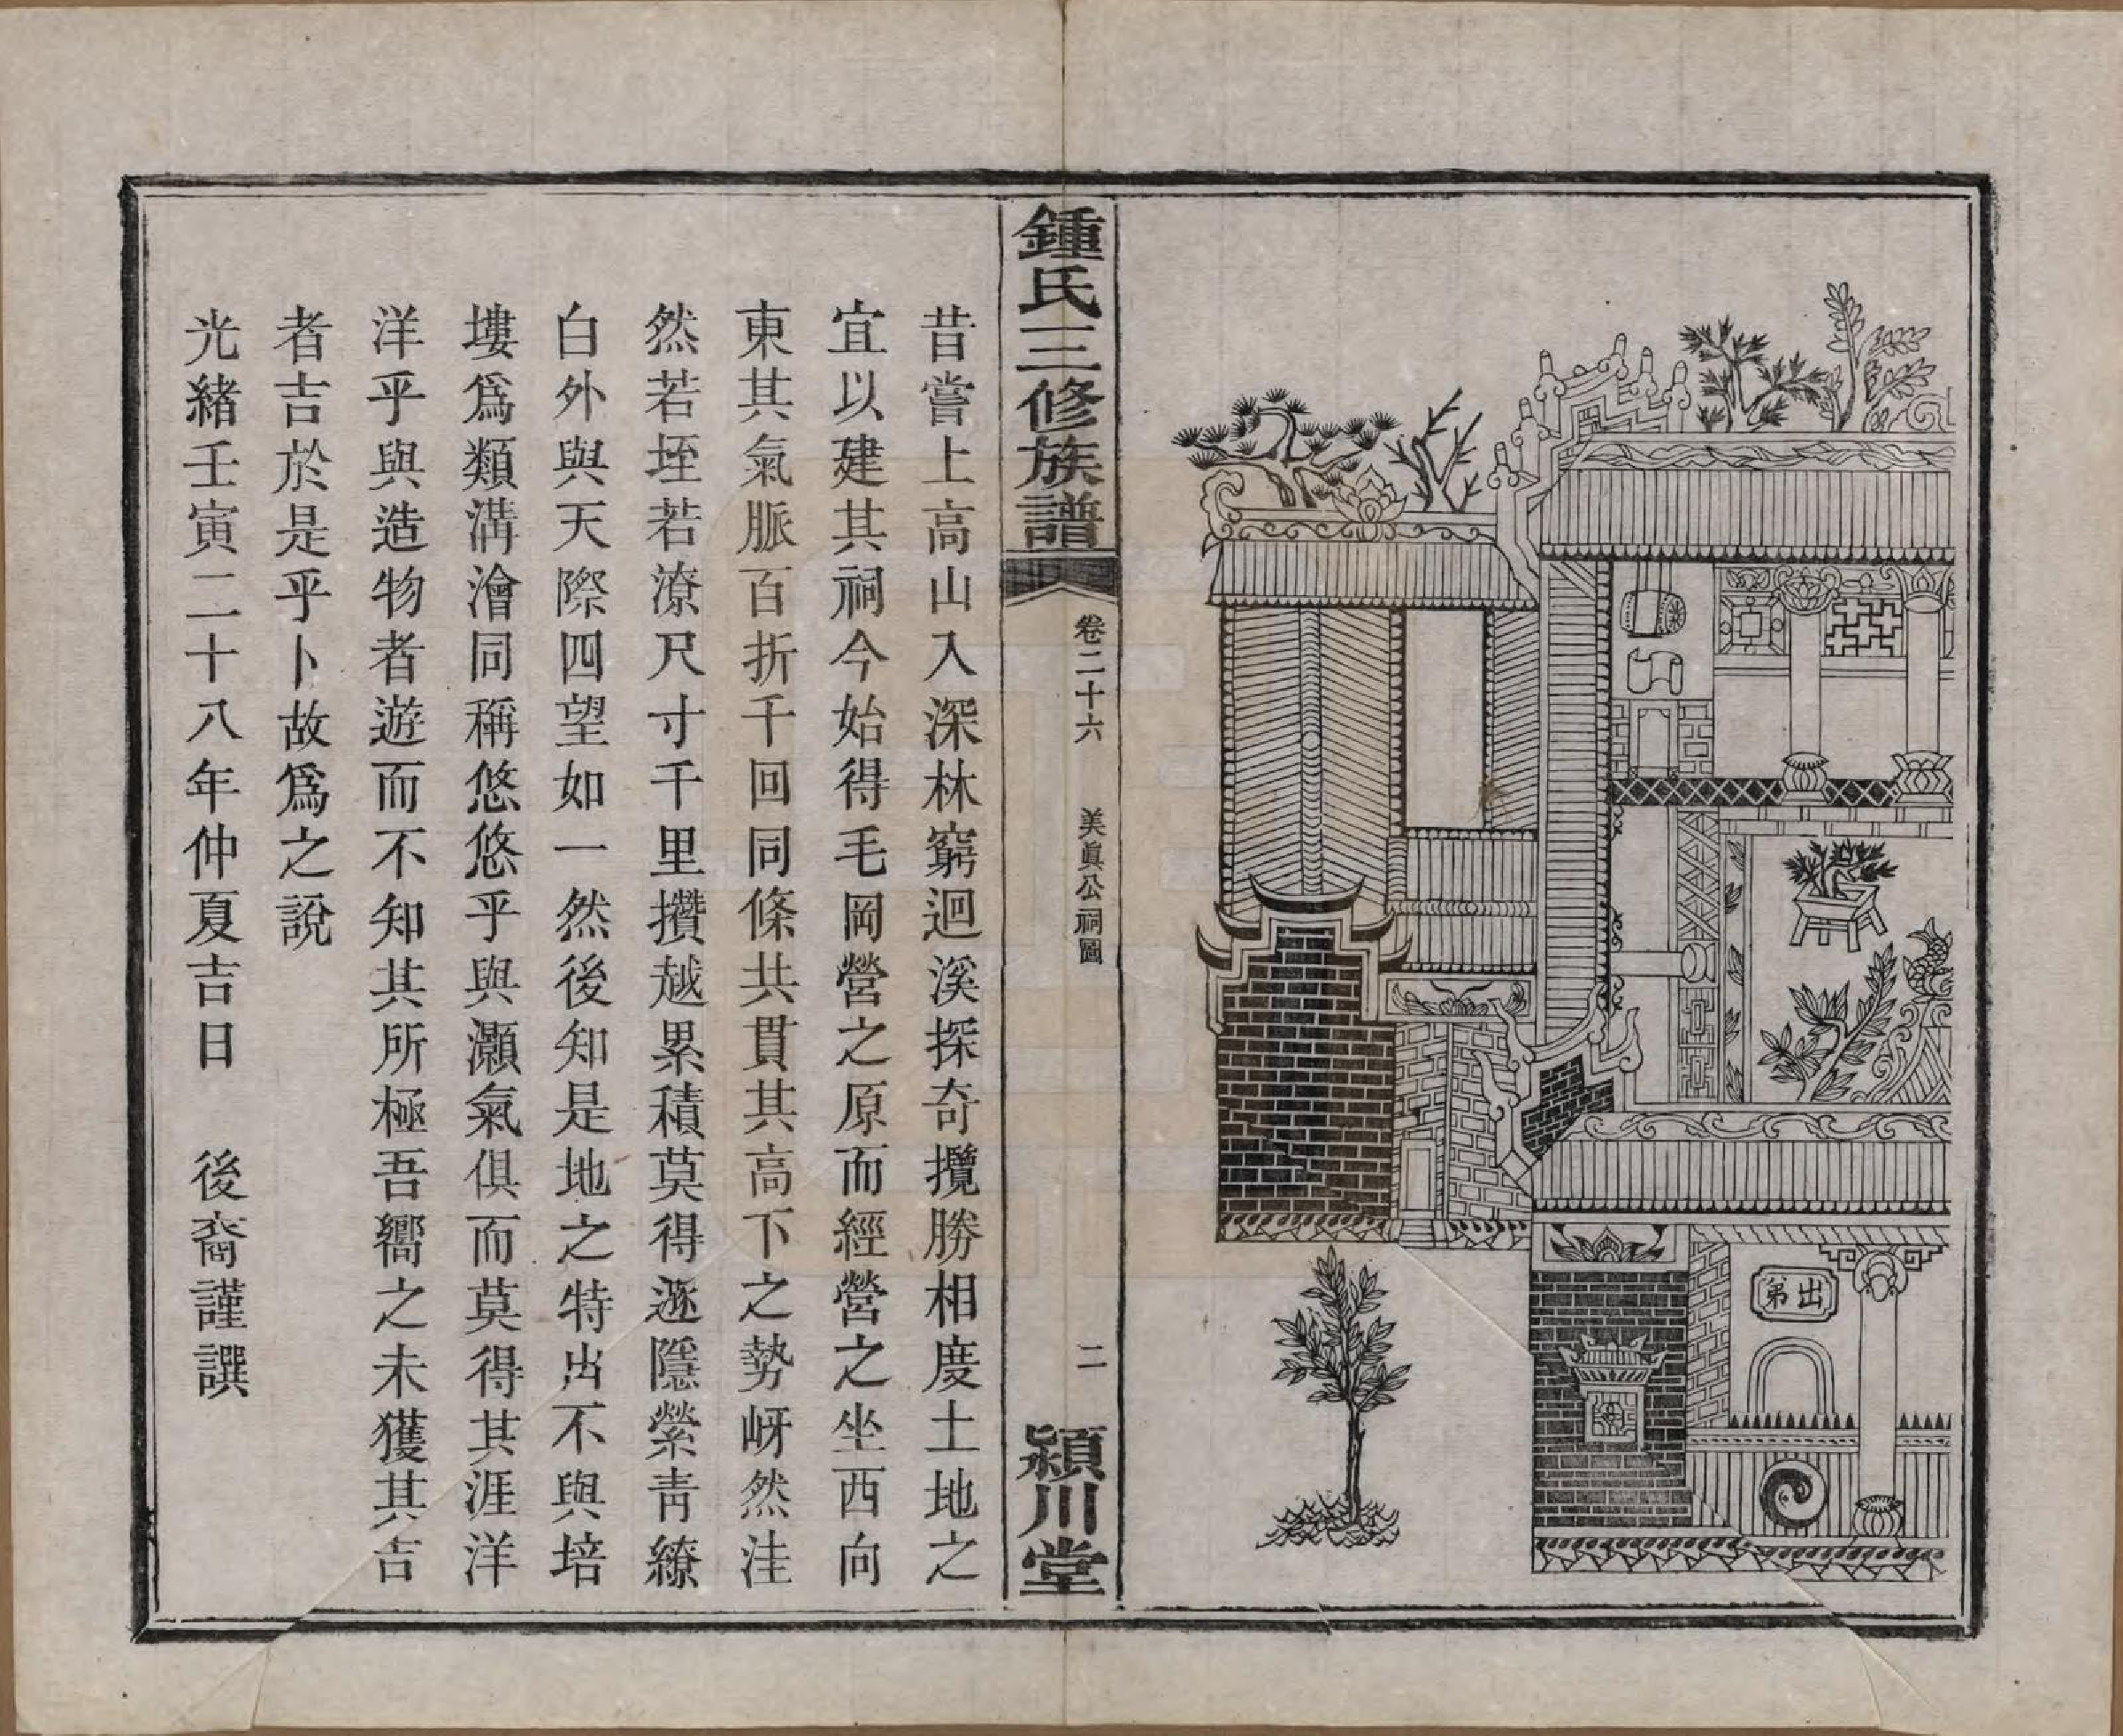 出第
鍾氏三修族譜
卷二十六
美眞公祠圖
二
潁川堂
昔嘗上高山入深林窮迴溪探奇攬勝相度土地之
宜以建其祠今始得毛岡營之原而經營之坐西向
東其氣脈百折千回同條共貫其高下之勢岈然洼
然若垤若潦尺寸千里攢越累積莫得遯隱縈青繚
白外與天際四望如一然後知是地之特出不與培
塿爲類溝澮同稱悠悠乎與灝氣俱而莫得其涯洋
洋乎與造物者遊而不知其所極吾嚮之未獲其吉
者吉於是乎卜故爲之說
光緒壬寅二十八年仲夏吉日　後裔謹譔